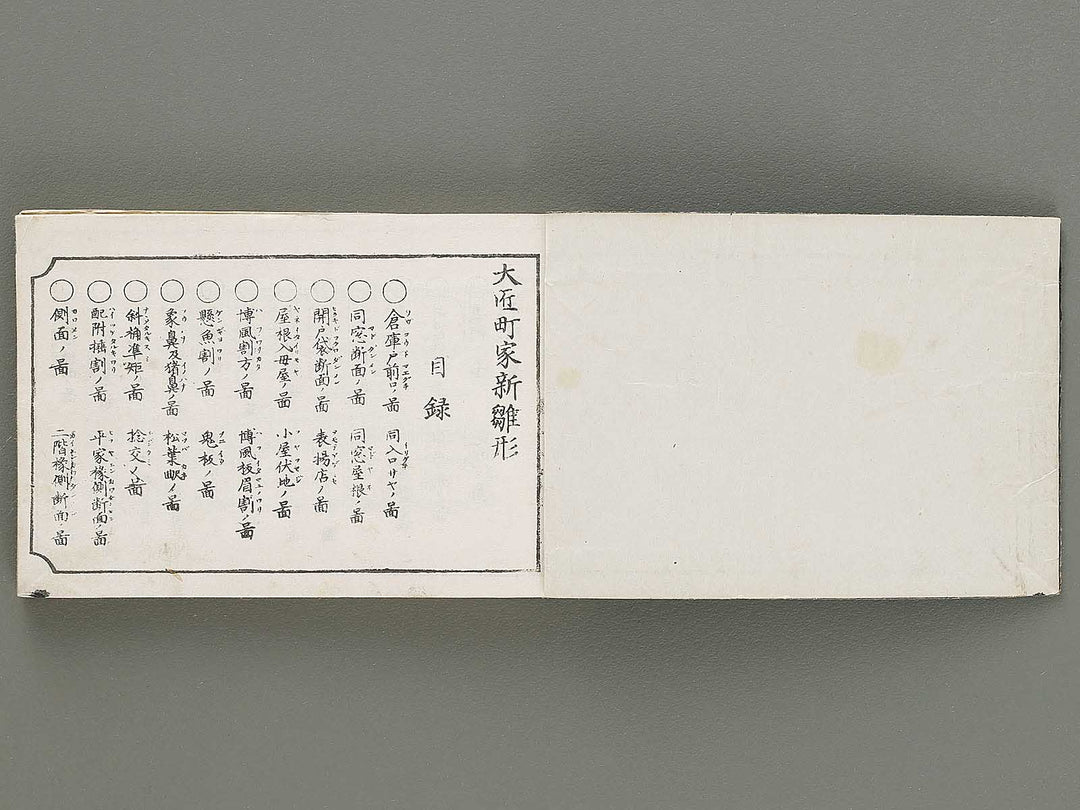 大匠町家新雛形
目録
○倉庫戸前口ノ啚 同入口サヤノ啚
○同窓断面ノ啚 同窓屋根ノ啚
○開戸袋断面ノ啚 表揚店ノ啚
○屋根入母屋ノ啚 小屋伏地ノ啚
○博風割方ノ啚 博風板眉割ノ啚
○懸魚割ノ啚 鬼板ノ啚
○象鼻及猪鼻ノ啚 松葉ノ啚
○斜桷準矩ノ啚 捻交ノ啚
○配附椽割ノ啚 平家椽側断面ノ啚
○側面ノ啚 二階椽側断面ノ啚